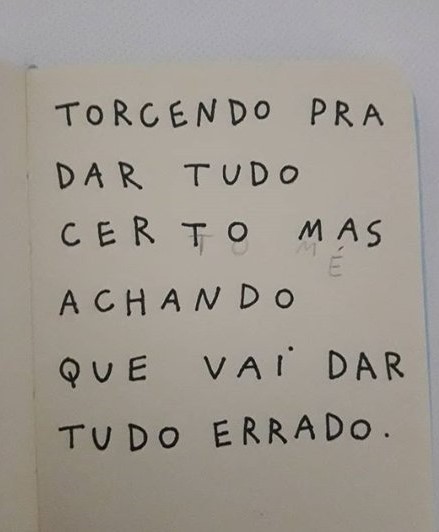 TORCENDO PRA
DAR TUDO
CERTO MAS
ACHANDO
QUE VAi DAR
TUDO ERRADO.